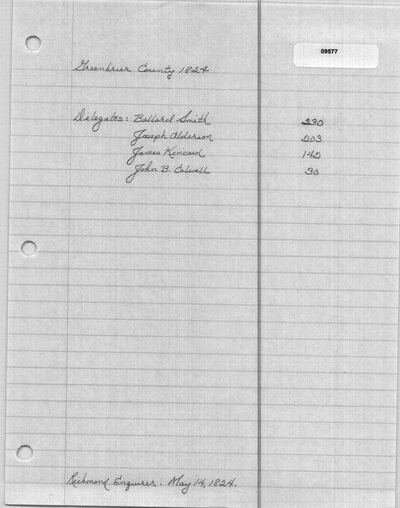 09577
Greenbrier County 1824
Delegates: Ballard Smith 230
Joseph Alderson 203
James Kincaid 142
John B. Calwell 30
Richmond Enquirer. May 14, 1824.